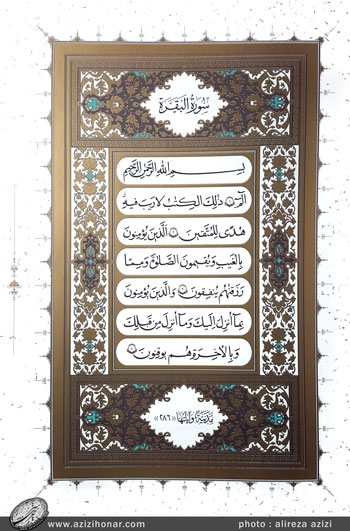 سُورَةُ الْبَقَرَة
بِسْمِ اللهِ الرَّحْمٰنِ الرَّحِیمِ
الٓمٓ ۝ ذٰلِكَ الْكِتٰبُ لَا رَیْبَ فِیهِ
هُدًی لِلْمُتَّقِینَ ۝ الَّذِینَ یُؤْمِنُونَ
بِالْغَیْبِ وَ یُقِیمُونَ الصَّلٰوةَ وَ مِمَّا
رَزَقْنٰهُمْ یُنْفِقُونَ ۝ وَالَّذِینَ یُؤْمِنُونَ
بِمَا أُنْزِلَ إِلَیْكَ وَ مَا أُنْزِلَ مِنْ قَبْلِكَ
وَ بِالْاٰخِرَةِ هُمْ یُوقِنُونَ
مَدَنِیَّةٌ وَ اٰیَاتُهَا «٢٨٦»
www.azizihonar.com photo : alireza azizi